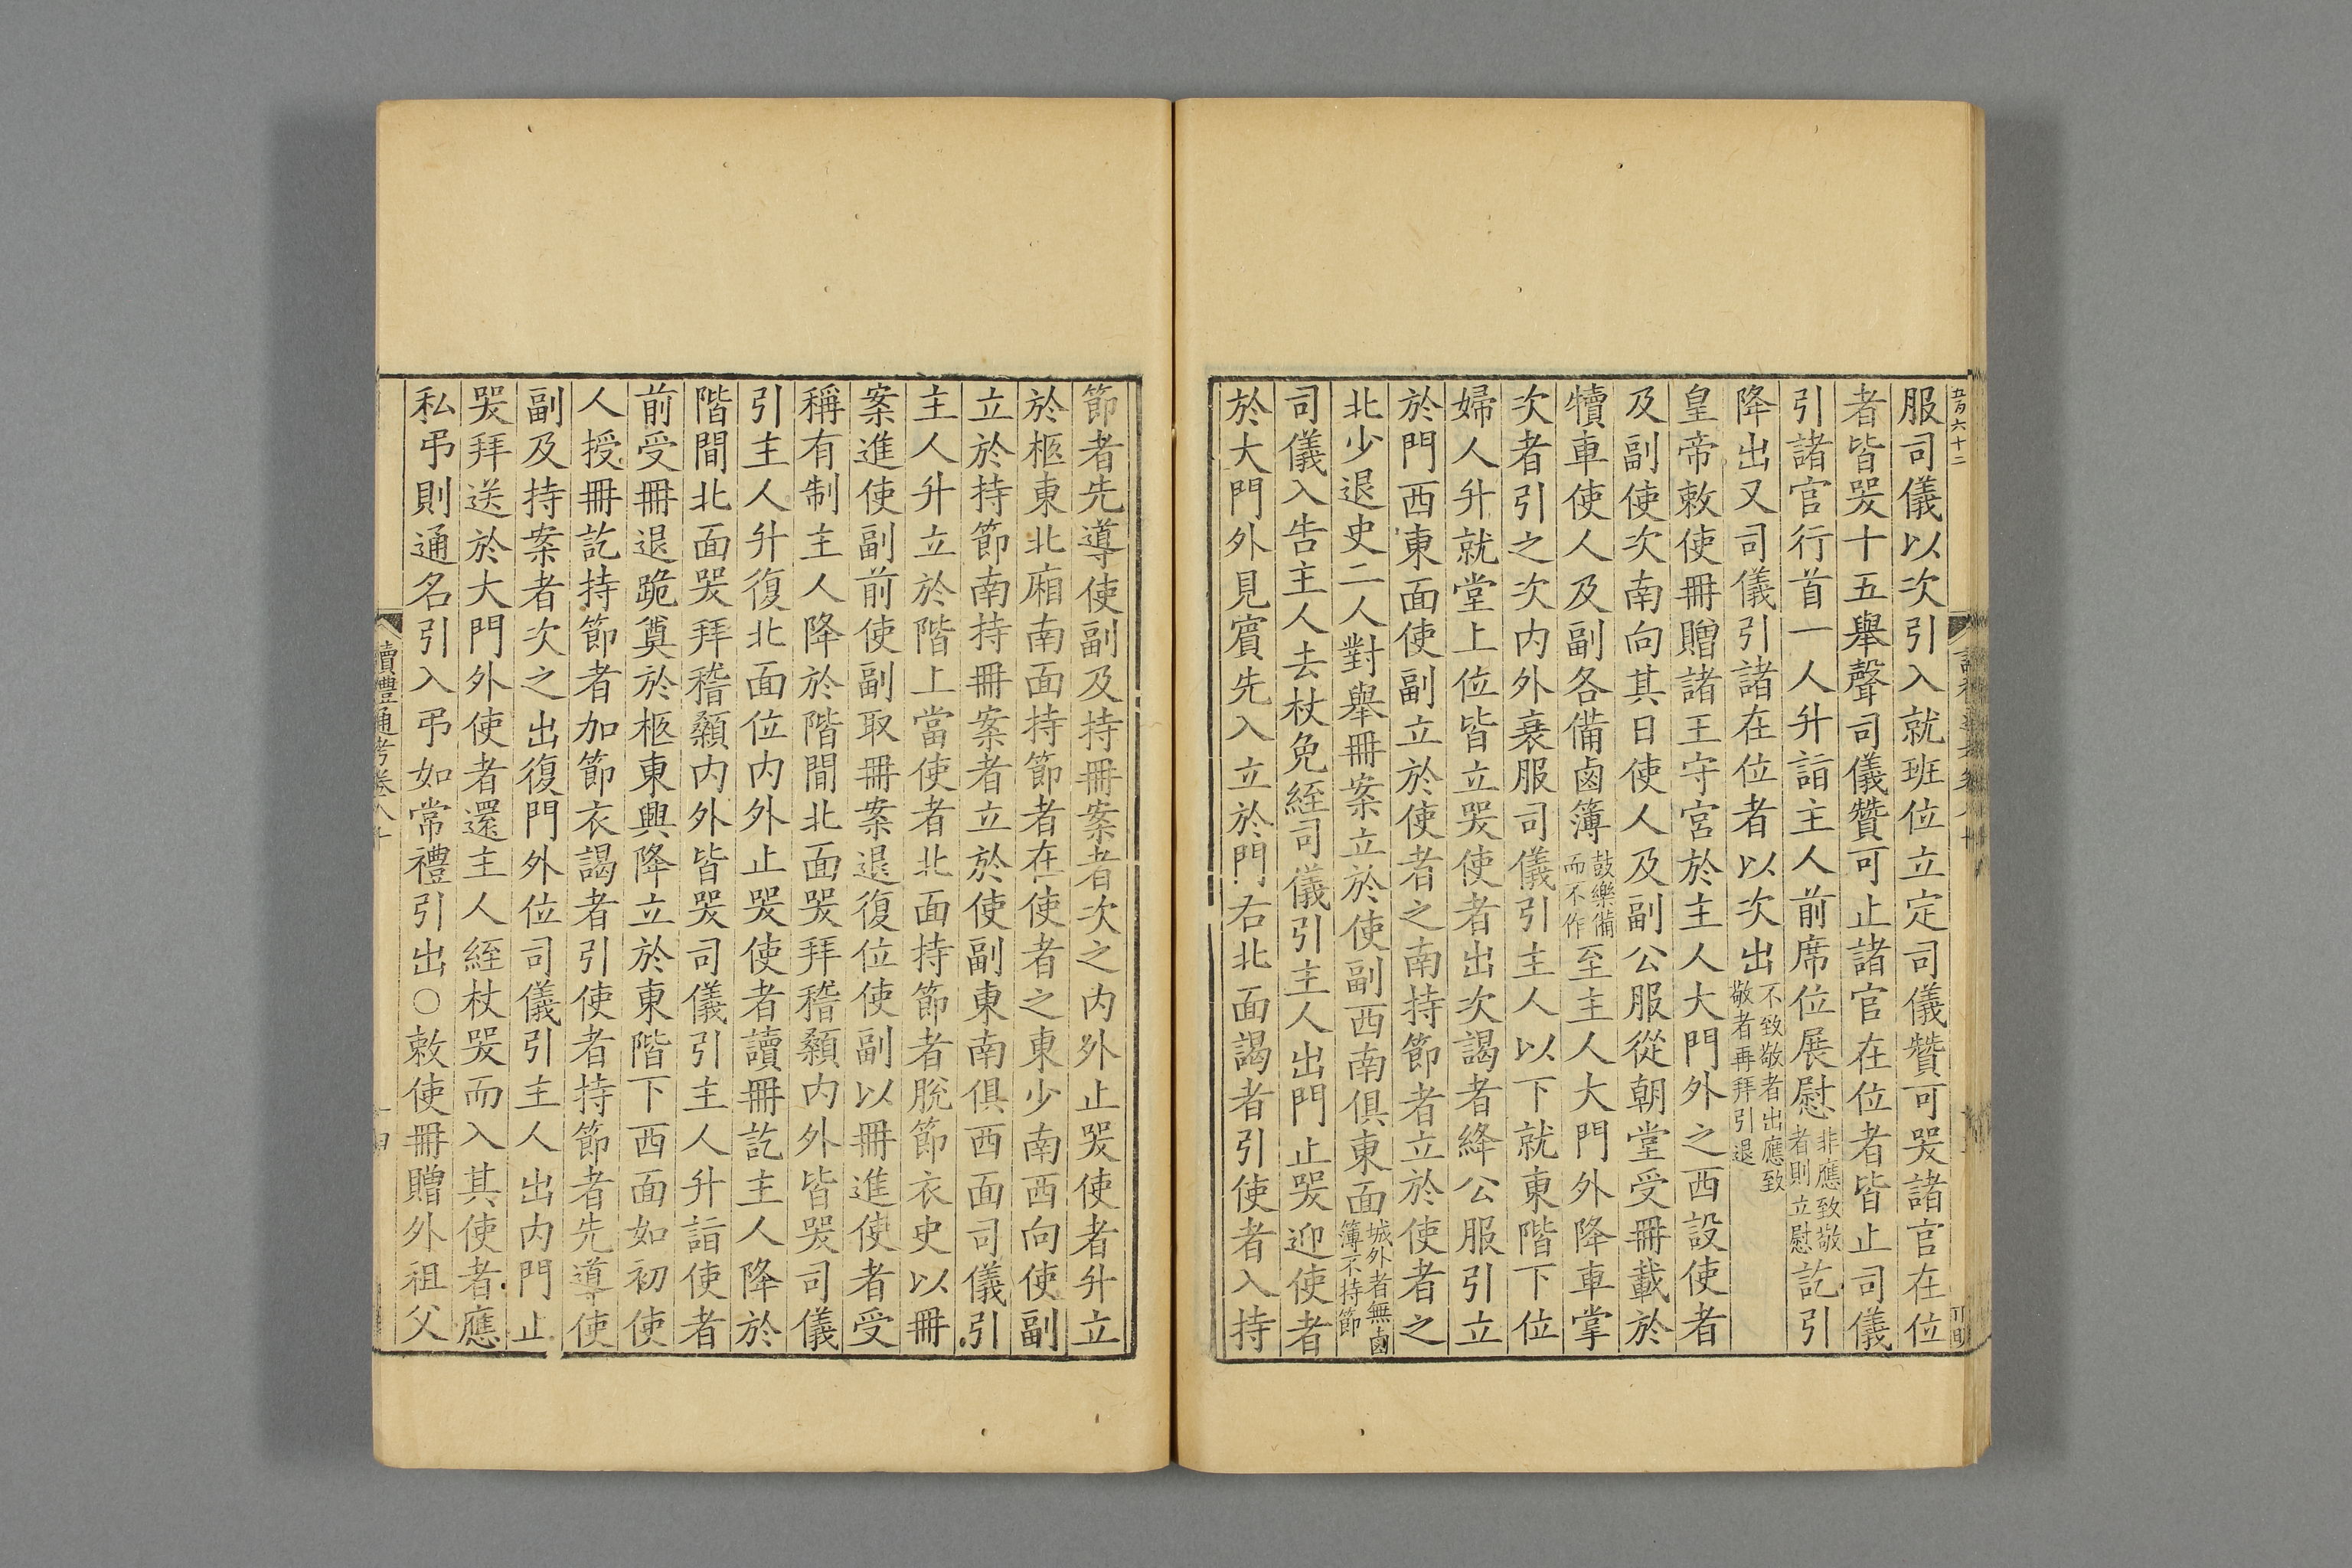 五百六十二
服司儀以次引入就班位立定司儀贊可哭諸官在位
者皆哭十五舉聲司儀贊可止諸官在位者皆止司儀
引諸官行首一人升詣主人前席位展慰非應致敬者則立慰訖引
降出又司儀引諸在位者以次出不致敬者出應致敬者再拜引退
皇帝敕使冊贈諸王守宮於主人大門外之西設使者
及副使次南向其日使人及副公服從朝堂受冊載於
犢車使人及副各備鹵簿鼓樂備而不作至主人大門外降車掌
次者引之次内外衰服司儀引主人以下就東階下位
婦人升就堂上位皆立哭使者出次謁者絳公服引立
於門西東面使副立於使者之南持節者立於使者之
北少退史二人對舉冊案立於使副西南俱東面城外者無鹵簿不持節
司儀入告主人去杖免絰司儀引主人出門止哭迎使者
於大門外見賓先入立於門右北面謁者引使者入持
節者先導使副及持冊案者次之内外止哭使者升立
於柩東北廂南面持節者在使者之東少南西向使副
立於持節南持冊案者立於使副東南俱西面司儀引
主人升立於階上當使者北面持節者脫節衣史以冊
案進使副前使副取冊案退復位使副以冊進使者受
稱有制主人降於階間北面哭拜稽顙内外皆哭司儀
引主人升復北面位内外止哭使者讀冊訖主人降於
階間北面哭拜稽顙内外皆哭司儀引主人升詣使者
前受冊退跪奠於柩東興降立於東階下西面如初使
人授冊訖持節者加節衣謁者引使者持節者先導使
副及持案者次之出復門外位司儀引主人出内門止
哭拜送於大門外使者還主人絰杖哭而入其使者應
私弔則通名引入弔如常禮引出○敕使冊贈外祖父
讀禮通考卷八十